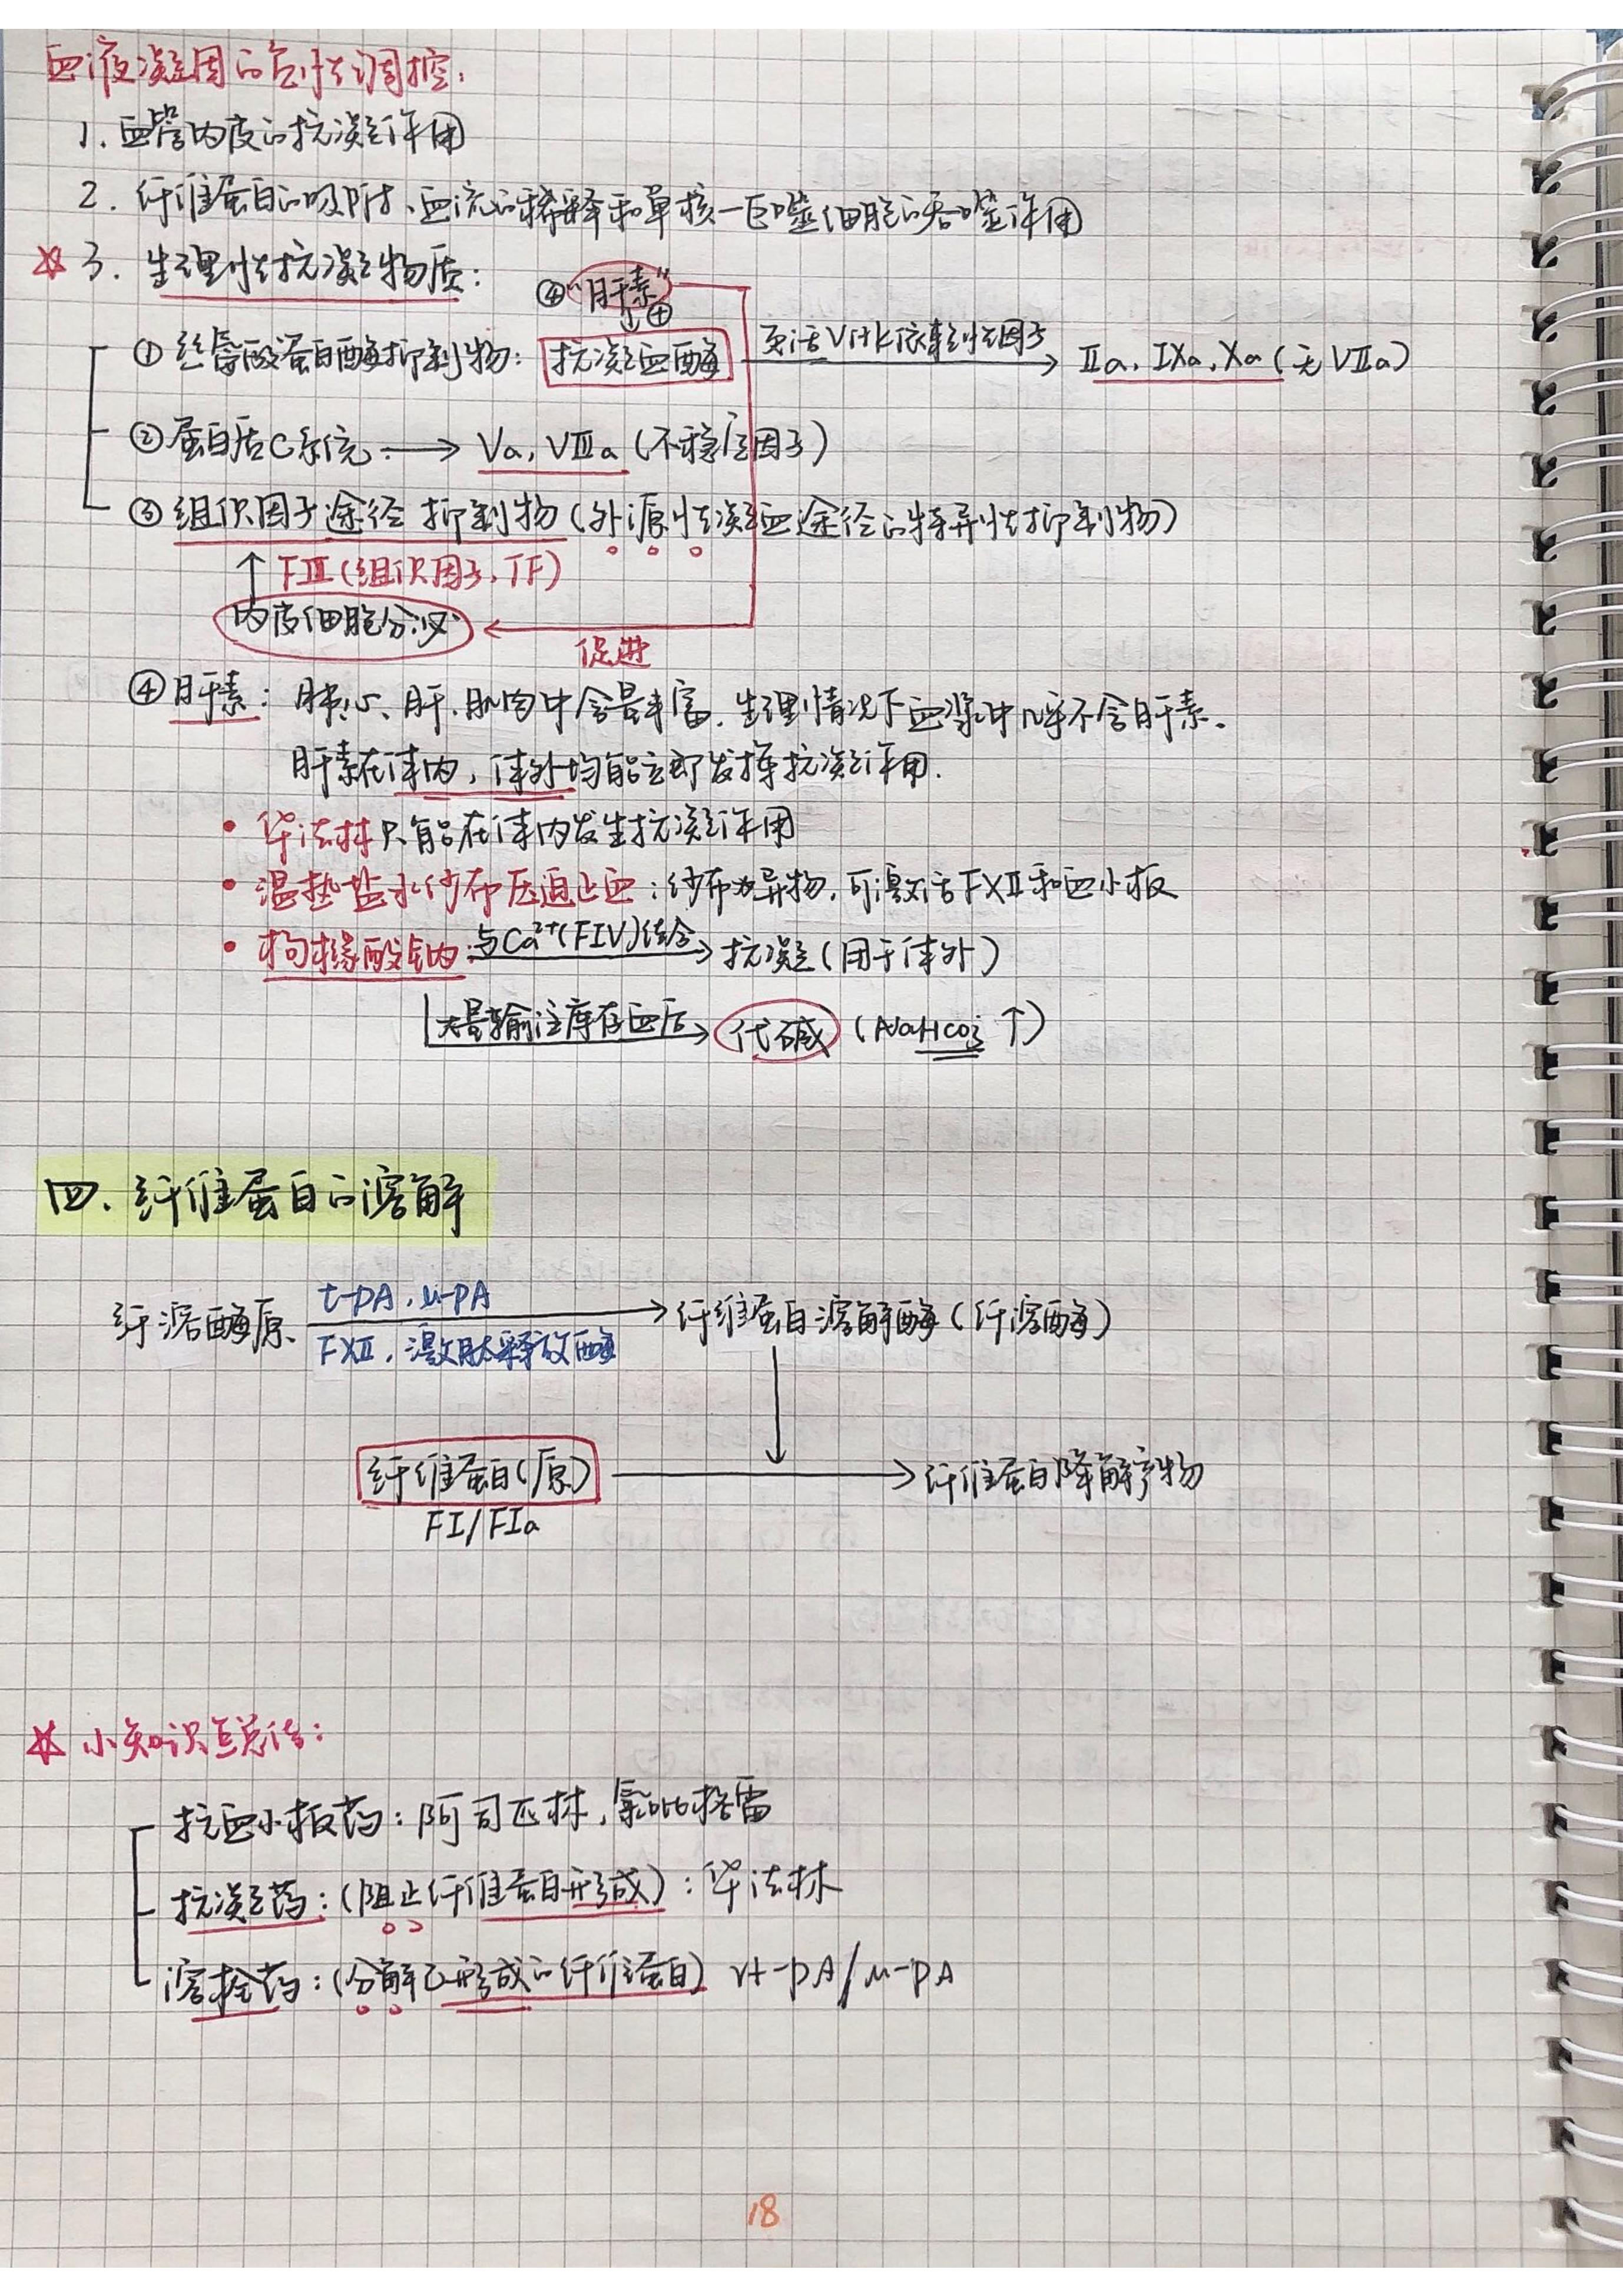 血液凝固的负性调控:
1. 血管内皮的抗凝作用
2. 纤维蛋白的吸附、血流的稀释和单核—巨噬细胞的吞噬作用
☆ 3. 生理性抗凝物质:
④“肝素”
↓⊕
① 丝氨酸蛋白酶抑制物: 抗凝血酶 灭活Vitk依赖性因子→ Ⅱa, Ⅸa, Xa (无Ⅶa)
② 蛋白质C系统 → Va, Ⅷa (不稳定因子)
③ 组织因子途径抑制物 (外源性凝血途径的特异性抑制物)
↑ FⅢ (组织因子, TF)
内皮细胞分泌 ← 促进
④ 肝素: 肺、心、肝、肌肉中含量丰富, 生理情况下血浆中几乎不含肝素。
肝素在体内, 体外均能立即发挥抗凝作用.
• 华法林只能在体内发生抗凝作用
• 温热盐水纱布压迫止血: 纱布为异物, 可激活FⅫ和血小板
• 枸橼酸钠 与Ca²⁺(FⅣ)结合→ 抗凝 (用于体外)
大量输注库存血后→ 代碱 (NaHCO₃ ↑)
四、纤维蛋白的溶解
纤溶酶原 t-PA, u-PA → 纤维蛋白溶解酶 (纤溶酶)
FⅫ, 激肽释放酶
↓
纤维蛋白(原) → 纤维蛋白降解产物
FⅠ/FⅠa
☆ 小知识点总结:
抗血小板药: 阿司匹林, 氯吡格雷
抗凝药: (阻止纤维蛋白形成): 华法林
溶栓药: (分解已形成的纤维蛋白) rt-PA/u-PA
18